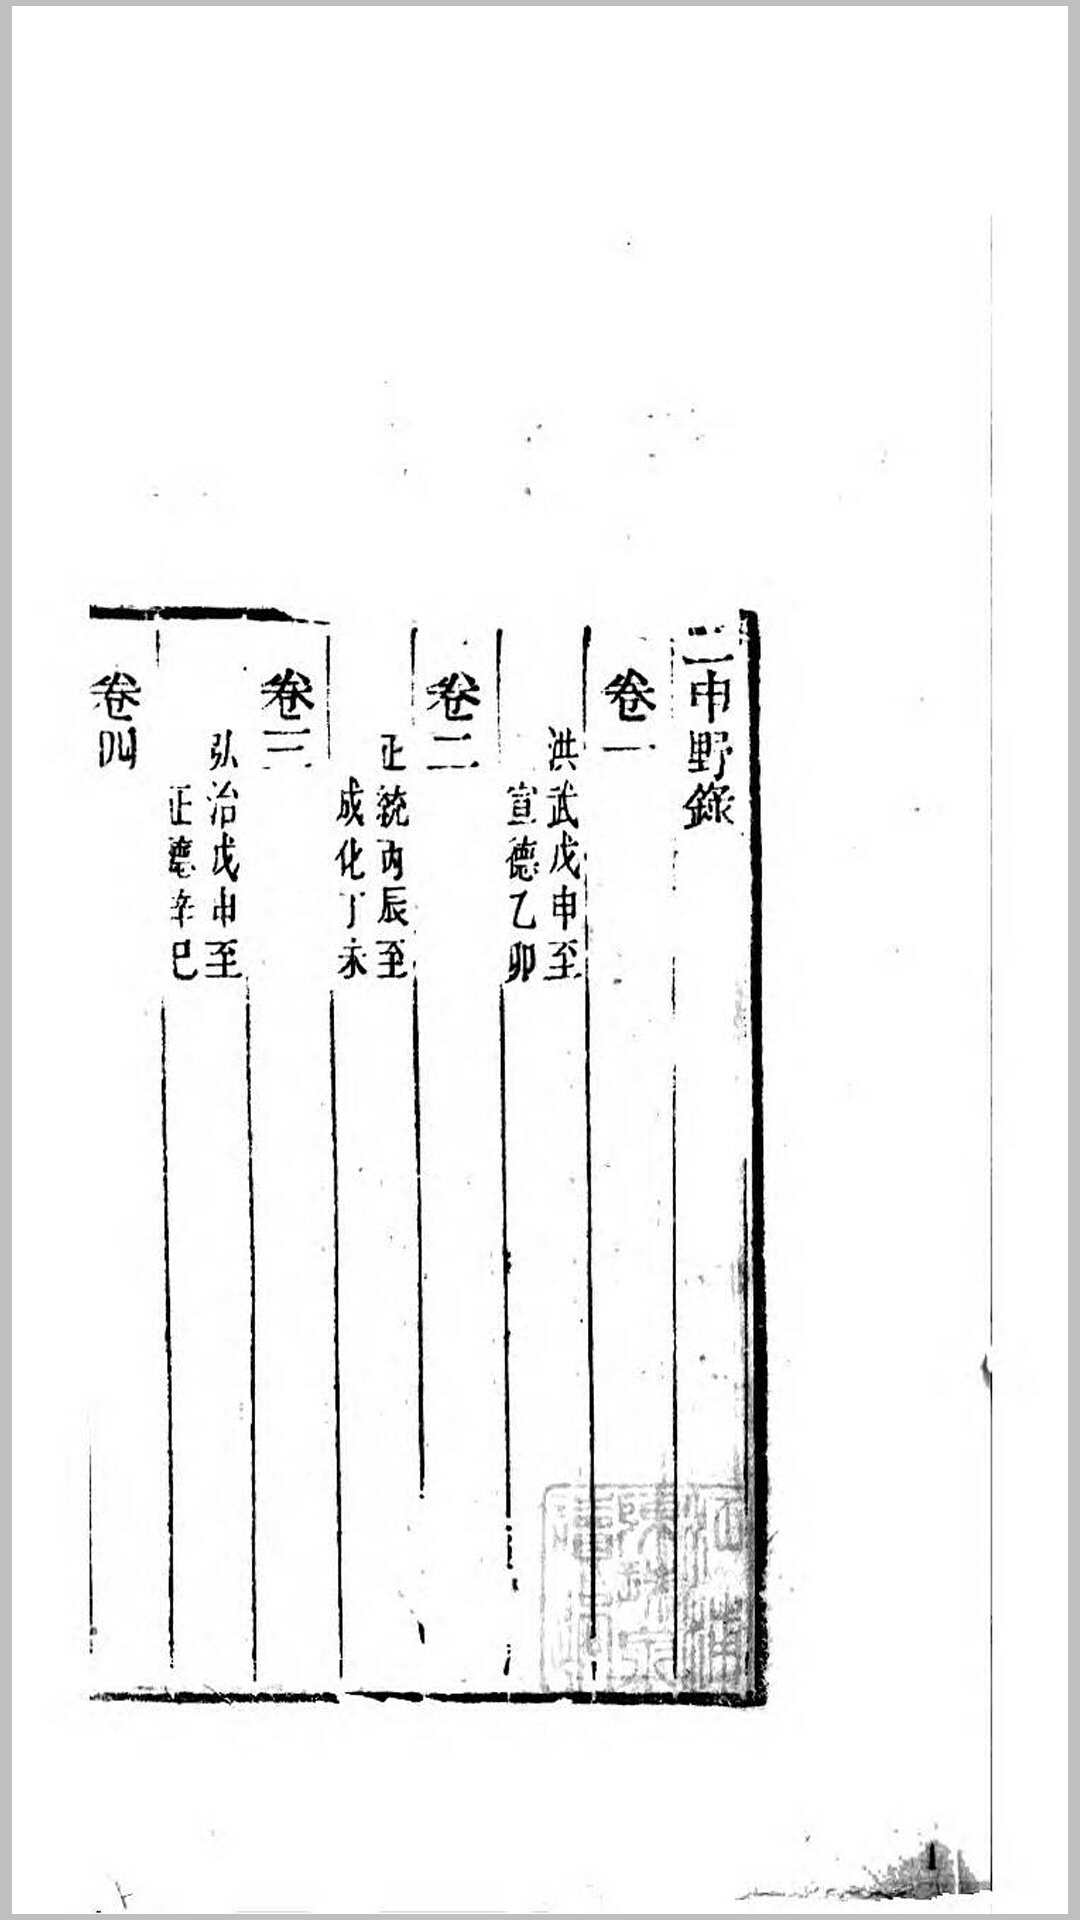 二申野錄
卷一
洪武戊申至
宣德乙卯
卷二
正統丙辰至
成化丁未
卷三
弘治戊申至
正德辛巳
卷四
1